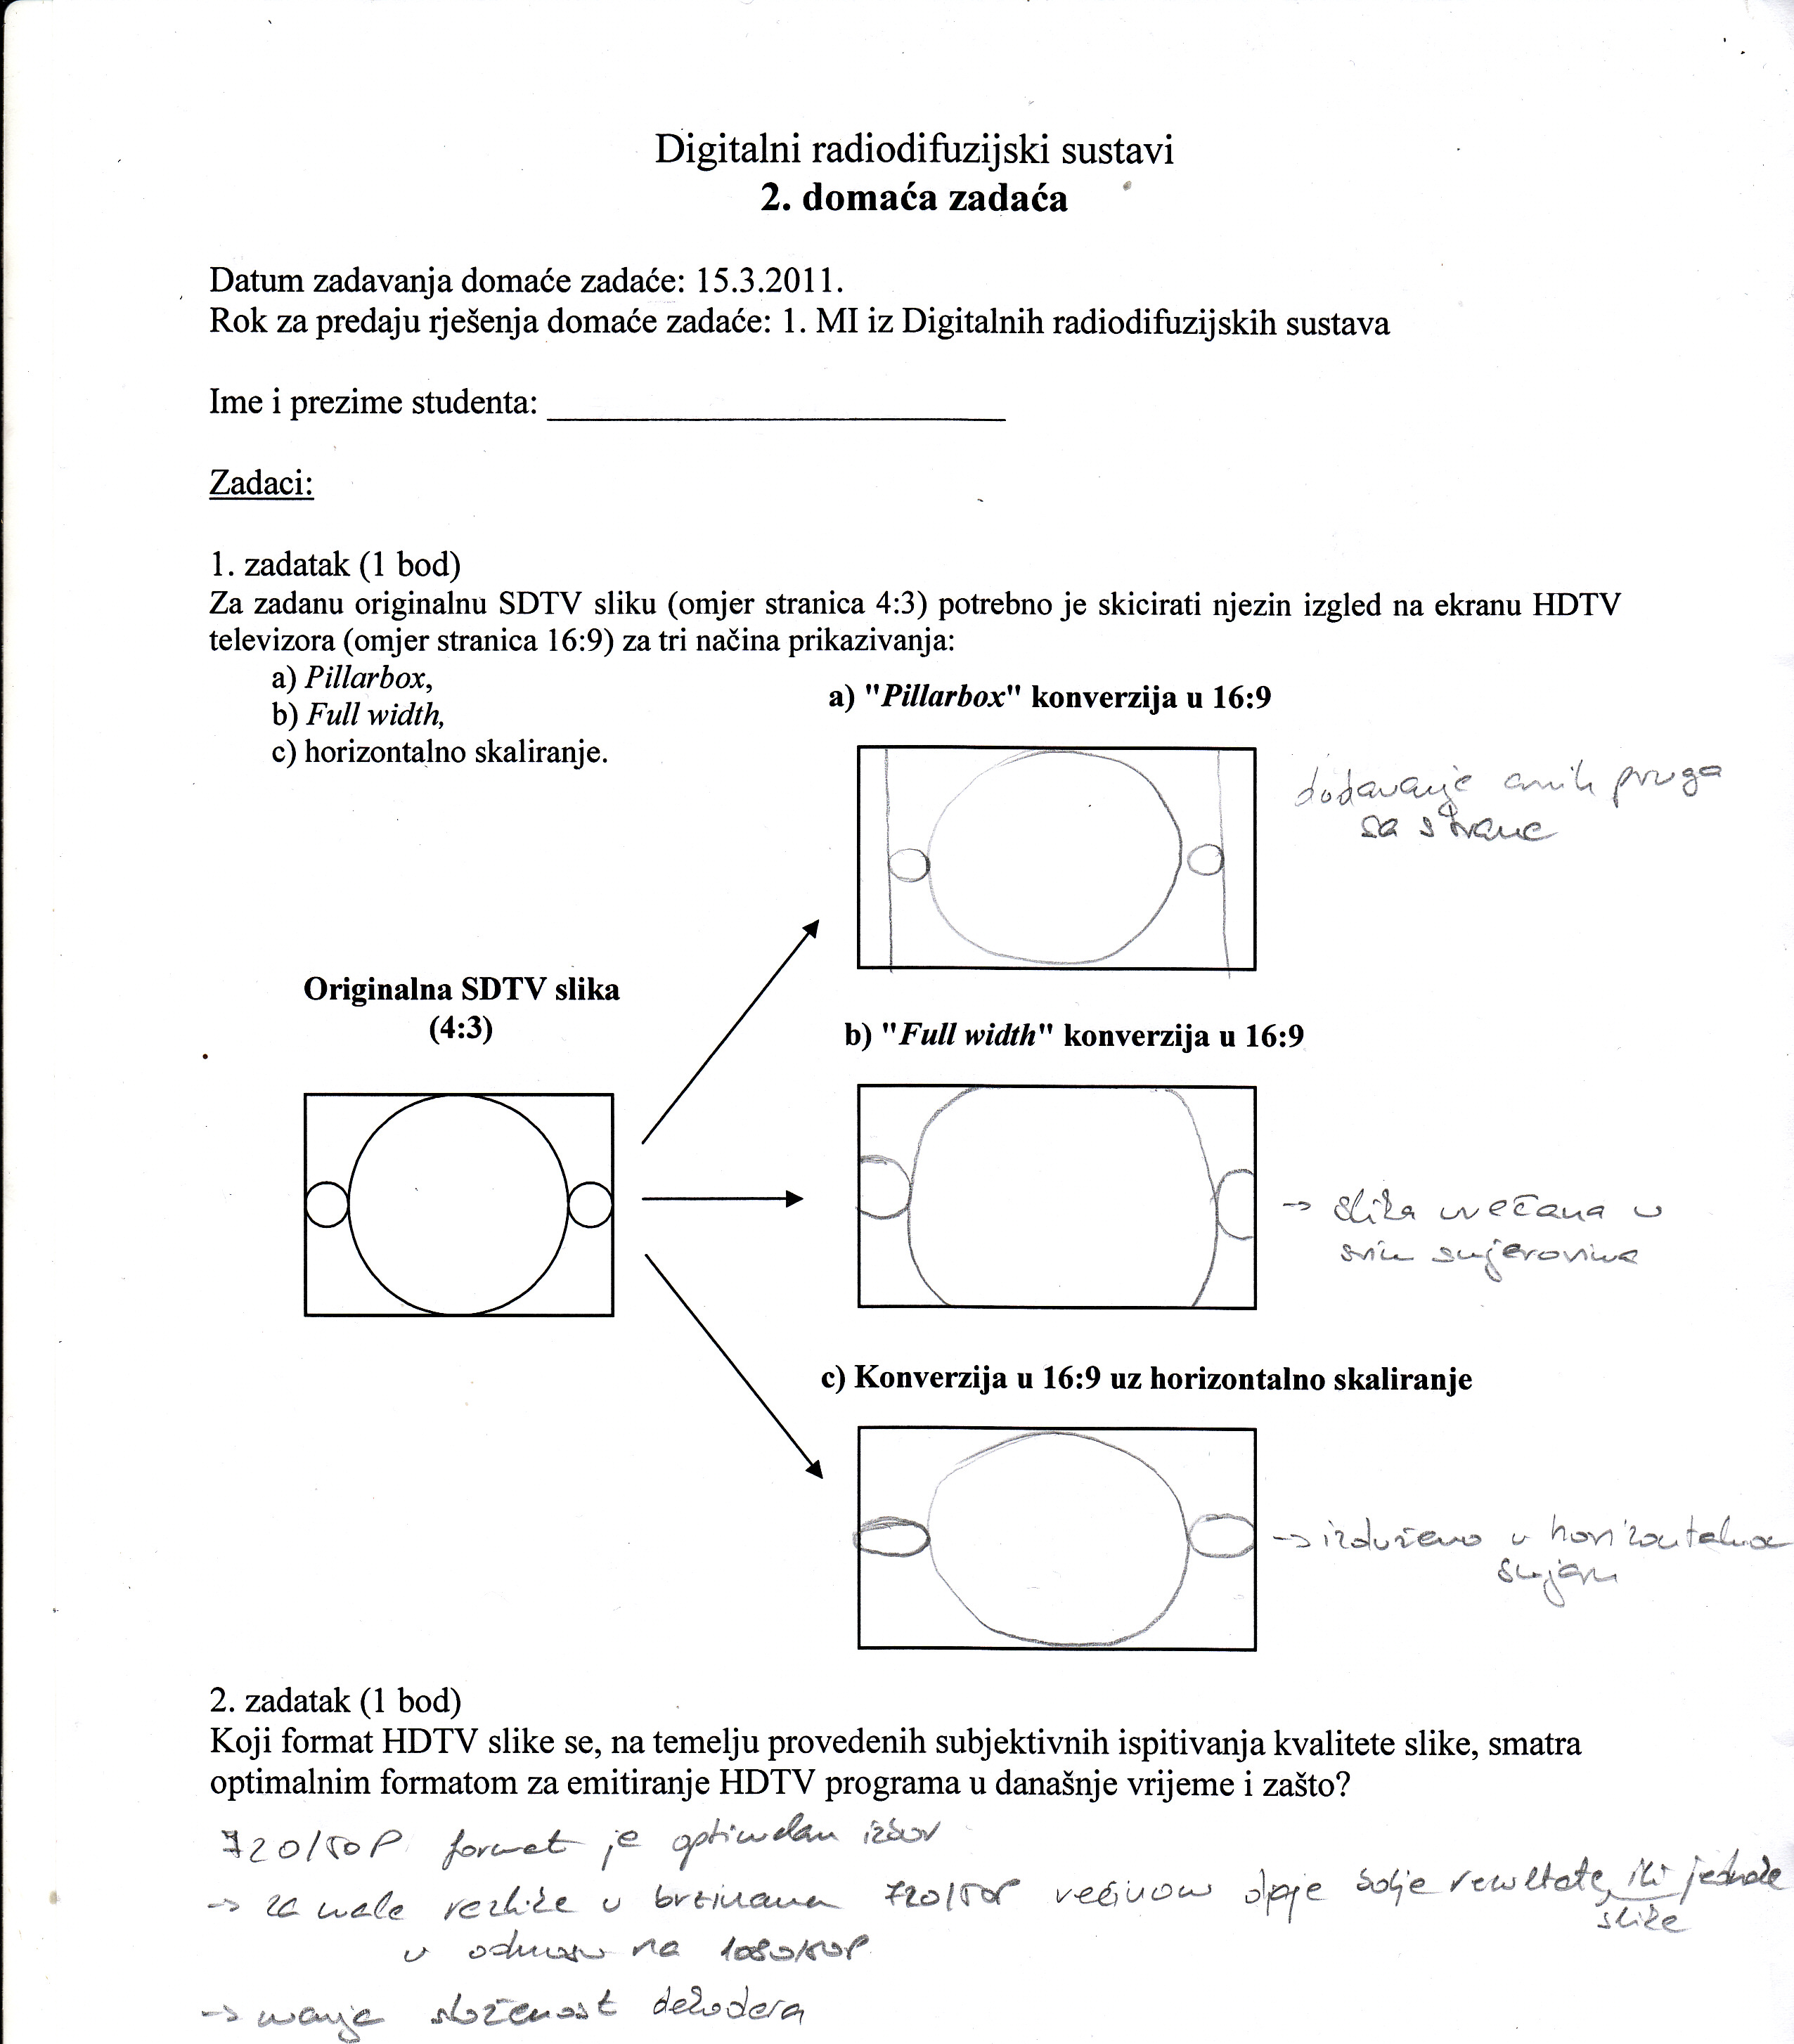 Digitalni radiodifuzijski sustavi
2. domaća zadaća
Datum zadavanja domaće zadaće: 15.3.2011.
Rok za predaju rješenja domaće zadaće: 1. MI iz Digitalnih radiodifuzijskih sustava
Ime i prezime studenta: ____________________
Zadaci:
1. zadatak (1 bod)
Za zadanu originalnu SDTV sliku (omjer stranica 4:3) potrebno je skicirati njezin izgled na ekranu HDTV
televizora (omjer stranica 16:9) za tri načina prikazivanja:
a) Pillarbox,
b) Full width,
c) horizontalno skaliranje.
a) "Pillarbox" konverzija u 16:9
dodavanje crnih pruga
sa strane
Originalna SDTV slika
(4:3)
b) "Full width" konverzija u 16:9
→ slika uvećana u
svim smjerovima
c) Konverzija u 16:9 uz horizontalno skaliranje
→ izduženo u horizontalnom
smjeru
2. zadatak (1 bod)
Koji format HDTV slike se, na temelju provedenih subjektivnih ispitivanja kvalitete slike, smatra
optimalnim formatom za emitiranje HDTV programa u današnje vrijeme i zašto?
720/50P format je optimalan izbor
→ za male razlike u brzinama 720/50P većinom daje bolje rezultate, ili jednake
slike
u odnosu na 1080/50P
→ manja složenost dekodera